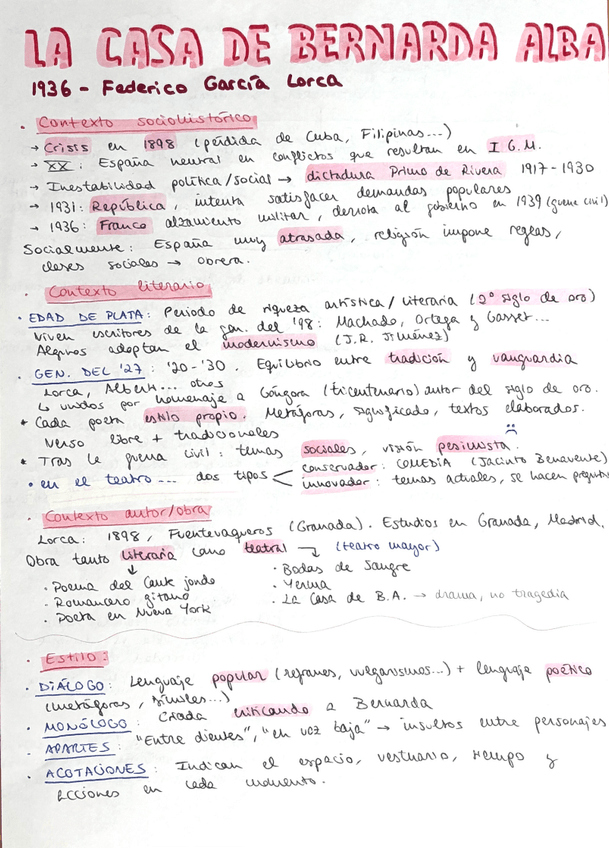 LA CASA DE BERNARDA ALBA
1936 - Federico García Lorca
· Contexto sociohistórico
→ Crisis en 1898 (pérdida de Cuba, Filipinas...)
→ XX: España neutral en conflictos que resultan en I G.M.
→ Inestabilidad política/social → dictadura Primo de Rivera 1917-1930
→ 1931: República, intenta satisfacer demandas populares
→ 1936: Franco alzamiento militar, derrota al gobierno en 1939 (guerra civil)
Socialmente: España muy atrasada, religión impone reglas,
clases sociales → obrera.
· Contexto literario
· EDAD DE PLATA: Periodo de riqueza artística/literaria (2º siglo de oro)
Viven escritores de la gen. del '98: Machado, Ortega y Gasset...
Algunos adoptan el modernismo (J.R. Jiménez)
· GEN. DEL '27: '20-'30. Equilibrio entre tradición y vanguardia
Lorca, Alberti... otros
↳ unidos por homenaje a Góngora (tricentenario) autor del siglo de oro.
* Cada poeta estilo propio. Metáforas, significado, textos elaborados.
Verso libre + tradicionales
* Tras la guerra civil: temas sociales, visión pesimista.
· en el teatro... dos tipos < conservador: COMEDIA (Jacinto Benavente)
innovador: temas actuales, se hacen
· Contexto autor/obra
Lorca: 1898, Fuentevaqueros (Granada). Estudios en Granada, Madrid.
Obra tanto literaria como teatral → (teatro mayor)
· Poema del Cante jondo
· Romancero gitano
· Poeta en Nueva York
· Bodas de Sangre
· Yerma
· La Casa de B.A. → drama, no tragedia
· Estilo:
· DIÁLOGO: Lenguaje popular (refranes, vulgarismos...) + lenguaje poético
(metáforas, símiles...)
· MONÓLOGO: Criada criticando a Bernarda
· APARTES: "Entre dientes", "en voz baja" → insultos entre personajes
· ACOTACIONES: Indican el espacio, vestuario, tiempo y
acciones en cada momento.